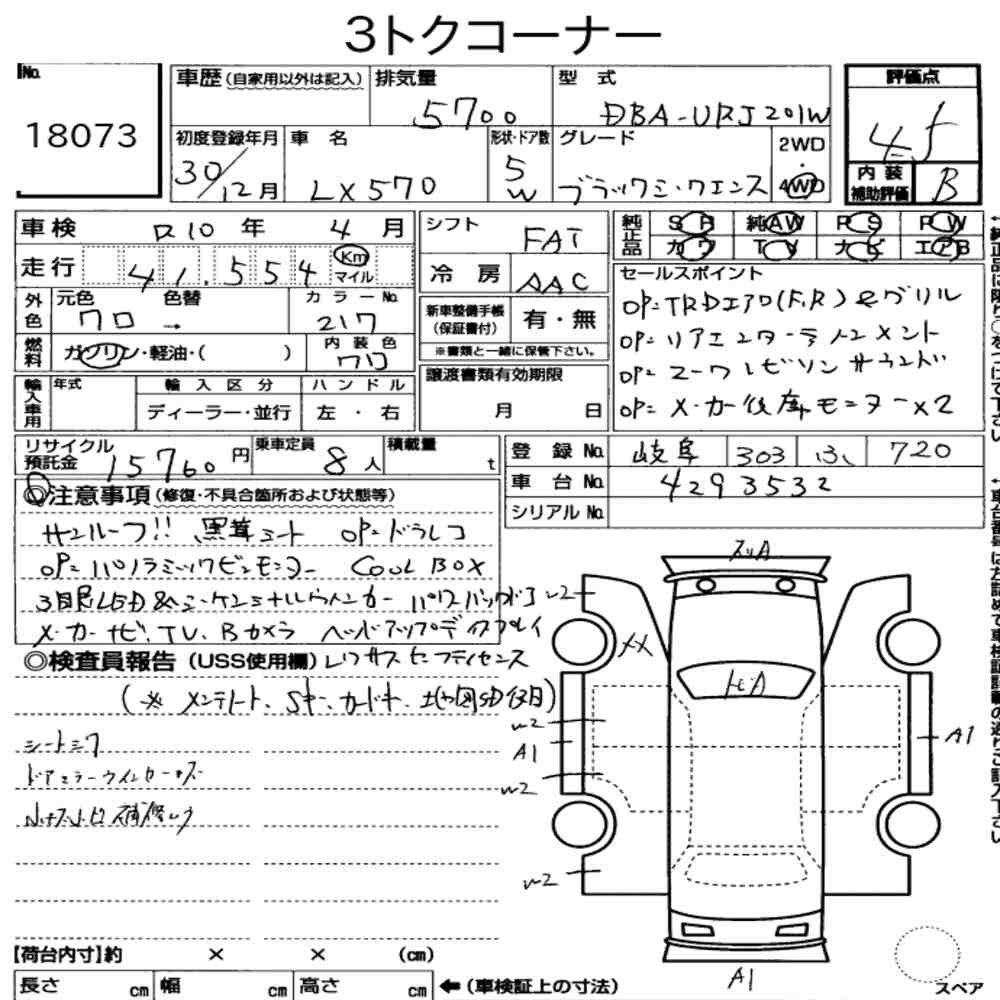 3トクコーナー
No.
18073
車歴(自家用以外は記入)
排気量 5700
型式 DBA-URJ201W
評価点 4.5
初度登録年月 30/12月
車名 LX570
形状・ドア数 5 W
グレード
2WD・4WD
内装補助評価 B
車検 R10年 4月
走行 41.554 Km マイル
シフト FAT
冷房 AAC
純正品 SR 純AW PS PW
カワ TV ナビ エアB
外色 元色 クロ → 色替
カラーNo. 217
新車整備手帳(保証書付) 有・無
※書類と一緒に保管下さい。
燃料 ガソリン・軽油・( )
内装色 クロ
輸入車用 年式 輸入区分 ハンドル
ディーラー・並行 左・右
譲渡書類有効期限
月 日
セールスポイント
OP=TRDエアロ(F,R)&グリル
OP=リアエンターテインメント
OP=マークレビンソンサウンド
OP=メーカー後席モニターx2
リサイクル預託金 15760円
乗車定員 8人
積載量 t
登録No. 岐阜 303 ふ 720
車台No. 4293532
シリアルNo.
◎注意事項(修復・不具合箇所および状態等)
サンルーフ!! 黒革シート OP=ドラレコ
OP=パノラミックビューモニター COOL BOX
3眼LED&シーケンシャルウィンカー パワーバックドア
メーカーナビ、TV、Bカメラ ヘッドアップディスプレイ
◎検査員報告(USS使用欄) レクサスセーフティセンス
(※ メンテノート、Sキー、カードキー、地図SD後日)
シートシワ
ドアミラーウインカーキズ
補修
トビA
A1
A1
A1
W2
W2
W2
W2
【荷台内寸】約 × × (cm)
長さ cm 幅 cm 高さ cm ←(車検証上の寸法)
スペア